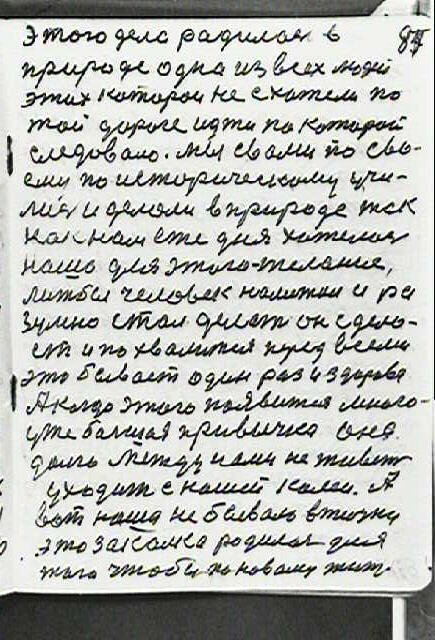 этого дела радилась в 87
природе одна из всех людей
этих которои не схотели по
той дороге идти по которой
следовало. Мы с вами по сво-
ему по историческому учи-
лися и делали в природе так
как нам еже дня хотелося
наша для этого-желание,
лижбы человек и
зумно стал делат он сдела-
ет и похвалится перед всеми
это бывает один раз и здорово
А когдо этого появится много-
уже балшая привычка она
долго между нами не живет
уходит с нашей колеи. А
вот наша не бывало в жизни
это закалка родилас для
того чтобы по новому жит-